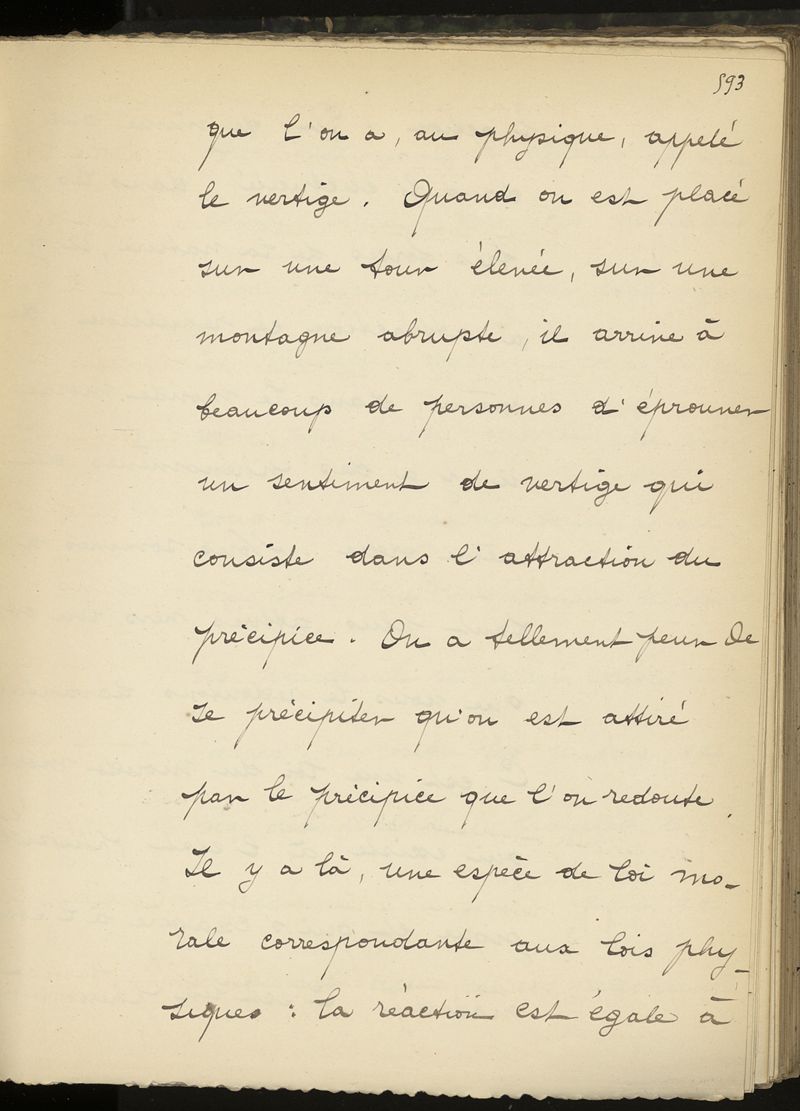 593
que l'on a, au physique, appelé
le vertige. Quand on est placé
sur une tour élevée, sur une
montagne abrupte, il arrive à
beaucoup de personnes d'éprouver
un sentiment de vertige qui
consiste dans l'attraction du
précipice. On a tellement peur de
se précipiter qu'on est attiré
par le précipice que l'on redoute.
Il y a là, une espèce de loi mo-
rale correspondante aux lois phy-
siques : la réaction est égale à